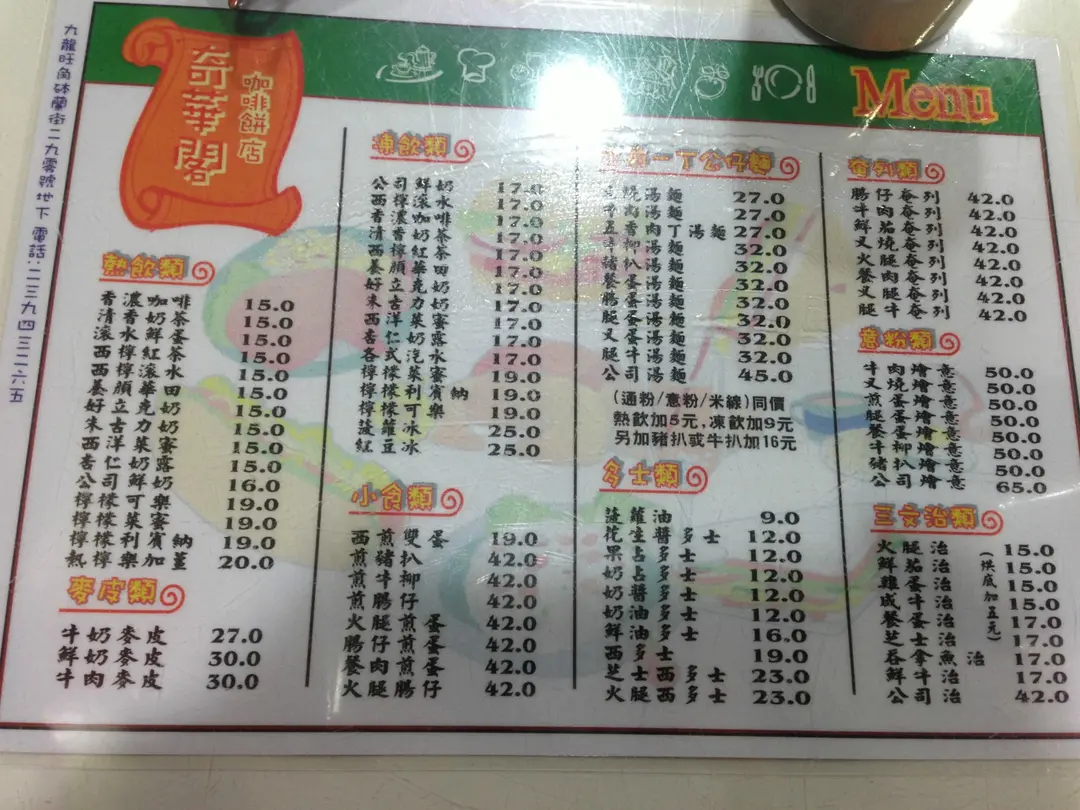 奇華閣
咖啡餅店
Menu
九龍旺角砵蘭街二九零號地下 電話:二三九四三二六五
熱飲類
香濃咖啡 15.0
清香奶茶 15.0
滾水鮮蛋 15.0
西檸紅茶 15.0
西檸滾水 15.0
養顏華田 15.0
好立克奶 15.0
朱古力奶 15.0
西洋菜蜜 15.0
杏仁奶露 15.0
公司鮮奶 16.0
檸檬可樂 19.0
檸檬菜蜜 19.0
檸檬利賓納 19.0
熱檸樂加薑 20.0
麥皮類
牛奶麥皮 27.0
鮮奶麥皮 30.0
牛肉麥皮 30.0
凍飲類
公司鮮奶 17.0
西檸滾水 17.0
香濃咖啡 17.0
清香奶茶 17.0
西檸紅茶 17.0
養顏華田 17.0
好立克奶 17.0
朱古力奶 17.0
西洋菜蜜 17.0
杏仁奶露 17.0
各式汽水 17.0
檸檬菜蜜 19.0
檸檬利賓納 19.0
檸檬可樂 19.0
菠蘿冰 25.0
紅豆冰 25.0
小食類
西煎雙蛋 19.0
煎豬扒 42.0
煎牛柳 42.0
煎腸仔 42.0
火腿煎蛋 42.0
腸仔煎蛋 42.0
餐肉煎蛋 42.0
火腿腸仔 42.0
一丁公仔麵
叉燒湯麵 27.0
湯麵 27.0
五香肉丁湯麵 27.0
牛柳湯麵 32.0
豬扒湯麵 32.0
餐蛋湯麵 32.0
腸蛋湯麵 32.0
腿蛋湯麵 32.0
叉蛋湯麵 32.0
腿牛湯麵 32.0
公司湯麵 45.0
(通粉/意粉/米線)同價
熱飲加5元,凍飲加9元
另加豬扒或牛扒加16元
多士類
菠蘿油 9.0
花生醬多士 12.0
果占多士 12.0
奶占多士 12.0
奶醬多士 12.0
奶油多士 12.0
鮮油多士 16.0
西多士 19.0
芝士西多士 23.0
火腿西多士 23.0
奄列類
腸仔奄列 42.0
牛肉奄列 42.0
鮮茄奄列 42.0
叉燒奄列 42.0
火腿奄列 42.0
餐肉奄列 42.0
叉牛奄列 42.0
腿牛奄列 42.0
意粉類
牛肉燴意 50.0
叉燒燴意 50.0
煎蛋燴意 50.0
腿蛋燴意 50.0
餐蛋燴意 50.0
牛柳燴意 50.0
豬扒燴意 50.0
公司燴意 65.0
三文治類
(烘底加五元)
火腿治 15.0
鮮茄治 15.0
雞蛋治 15.0
咸牛治 15.0
餐蛋治 17.0
芝士治 17.0
吞拿魚治 17.0
鮮牛治 17.0
公司治 42.0